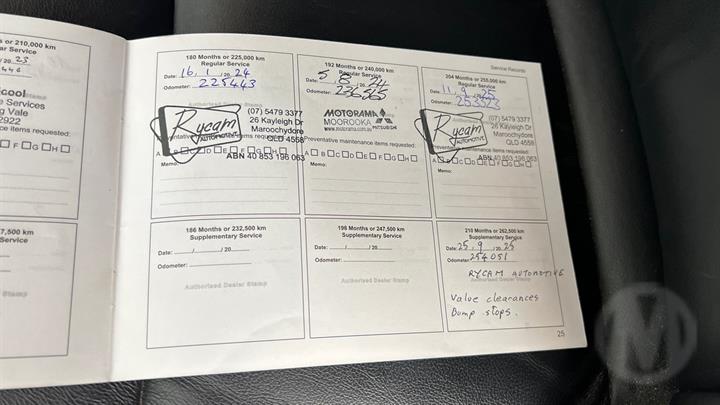 s or 210,000 km
r Service
/20 23
cool
e Services
g Vale
2922
e items requested:
F G H
7,500 km
Service
Service Records
180 Months or 225,000 km
Regular Service
Date: 16 / 1 /20 24
Odometer: 225443
Authorised Dealer Stamp
Rycam
AUTOMOTIVE
(07) 5479 3377
26 Kayleigh Dr
Maroochydore
QLD 4558
Preventative maintenance items requested:
A B C D E F G H
ABN 40 853 196 063
Memo:
192 Months or 240,000 km
Regular Service
Date: 5 / 8 /20 24
Odometer:
MOTORAMA
MOOROOKA MITSUBISHI
www.motorama.com.au
Preventative maintenance items requested:
A B C D E F G H
Memo:
204 Months or 255,000 km
Regular Service
Date: 11 / 9 /20 25
Odometer: 253323
Authorised Dealer Stamp
Rycam
AUTOMOTIVE
(07) 5479 3377
26 Kayleigh Dr
Maroochydore
QLD 4558
Preventative maintenance items requested:
A B C D E F G H
ABN 40 853 196 063
Memo:
186 Months or 232,500 km
Supplementary Service
Date: / /20
Odometer:
Authorised Dealer Stamp
198 Months or 247,500 km
Supplementary Service
Date: / /20
Odometer:
Authorised Dealer Stamp
210 Months or 262,500 km
Supplementary Service
Date: 25 / 9 /20 25
Odometer: 254051
RYCAM AUTOMOTIVE
Authorised Dealer Stamp
Value clearances
Bump stops.
25
M